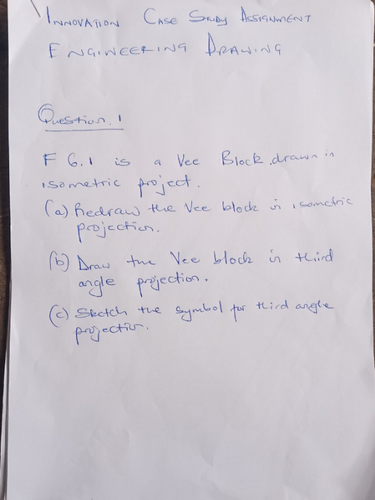 INNOVATION CASE STUDY ASSIGNMENT
ENGINEERING DRAWING
Question 1
F 6.1 is a Vee Block drawn in
isometric project.
(a) Redraw the Vee block in isometric
projection.
(b) Draw the Vee block in third
angle projection.
(c) Sketch the symbol for third angle
projection.